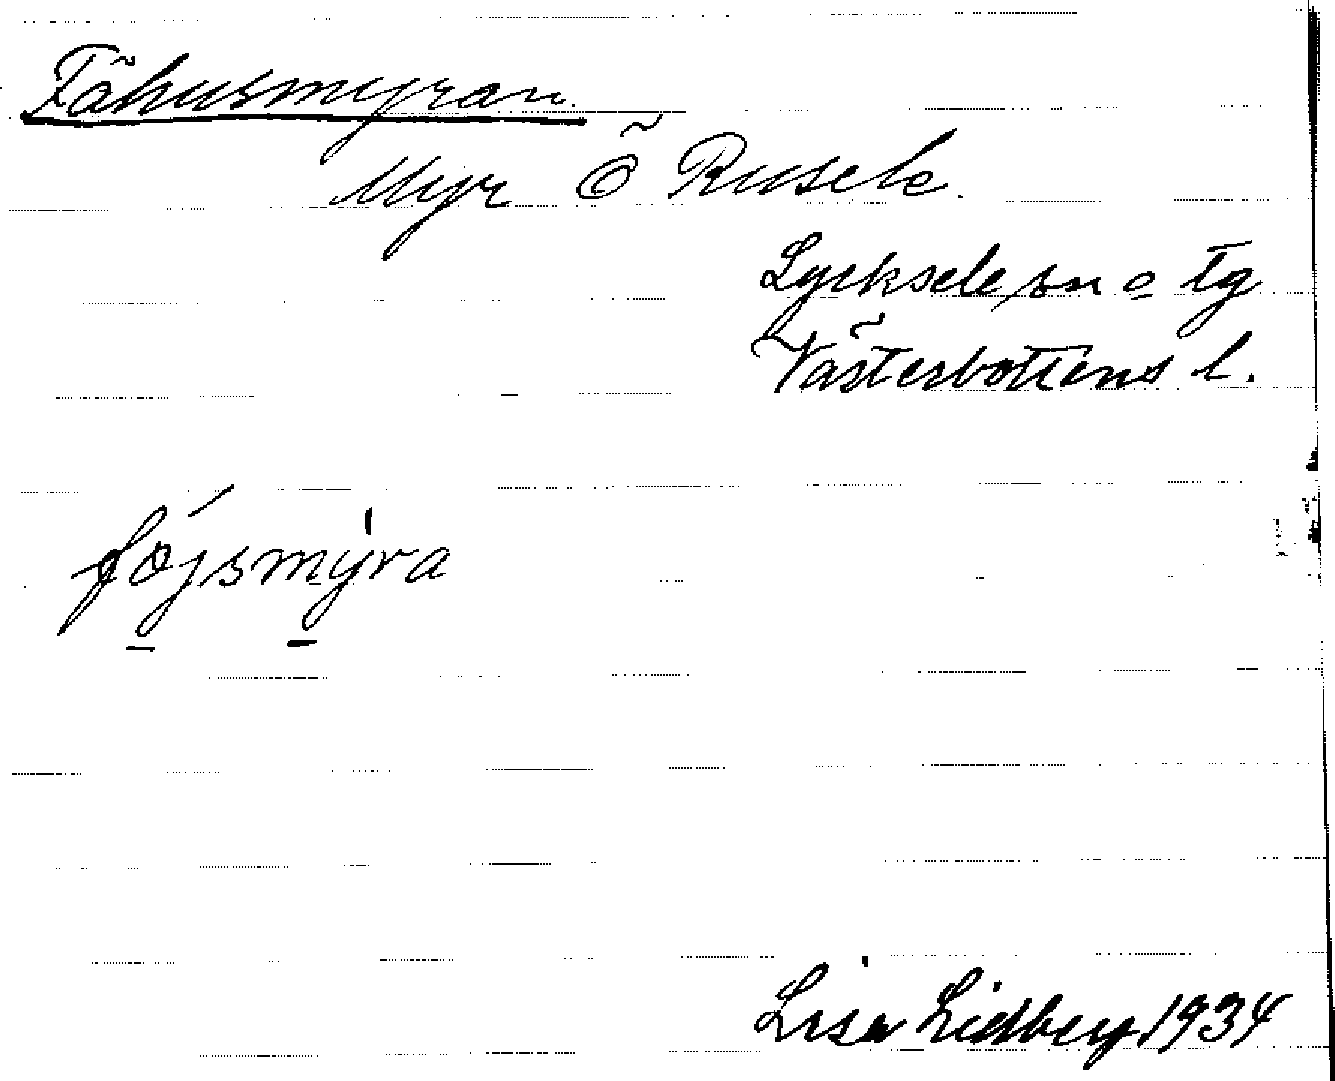 Fähusmyran.
Myr Ö Rusele.
Lycksele sn o tg
Västerbottens l.
fø̀jsmýra
Lisa Lidberg 1934